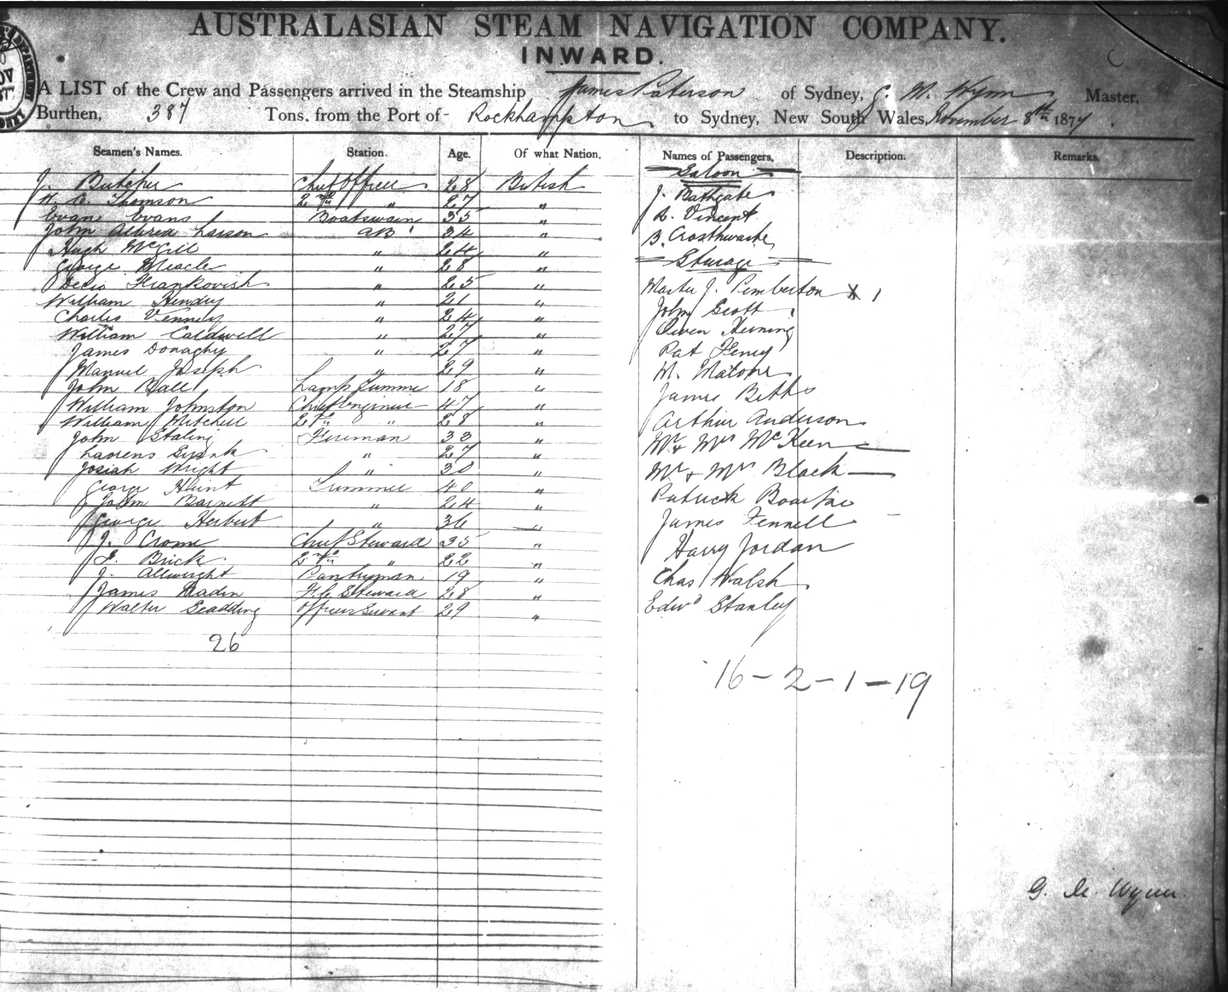 AUSTRALASIAN STEAM NAVIGATION COMPANY.
INWARD.
A LIST of the Crew and Passengers arrived in the Steamship James Paterson of Sydney, G. M. Wynn Master,
Burthen, 387 Tons, from the Port of Rockhampton to Sydney, New South Wales, November 8th 1877.
Seamen's Names. Station. Age. Of what Nation.
J. Butcher Chief Officer 28 British
W. A. Thomson 2nd " 27 "
Evan Evans Boatswain 35 "
John Alfred Larson AB 34 "
Hugh McGill " 24 "
George " 28 "
Frankovish " 25 "
William Hendry " 21 "
Charles Venney " 24 "
William Caldwell " 27 "
James Donaghy " 27 "
Manuel Joseph " 29 "
John Ball Lamp Trimmer 18 "
William Johnston Chief Engineer 47 "
William Mitchell 2nd " 28 "
John Staling Fireman 33 "
Laurens " 27 "
Josiah Wright " 30 "
George Hunt Trimmer 40 "
John Barnett " 24 "
George Herbert " 36 "
J. Crome Chief Steward 35 "
F. Brick 2nd " 22 "
J. Allwright Pantryman 19 "
James Madin F.C. Steward 28 "
Walter Scadding Officers Servant 29 "
26
Names of Passengers. Description. Remarks.
Saloon
J. Bathgate
L. Vincent
B. Crosthwaite
Steerage
Master J. Pemberton X 1
John Scott
Owen
Pat Henry
M. Malone
James Betths
Arthur Anderson
Mr & Mrs McKeen
Mr & Mrs Black
Patrick Bourke
James Fennell
Harry Jordan
Chas Walsh
Edwd Stanley
16-2-1-19
G. M. Wynn.